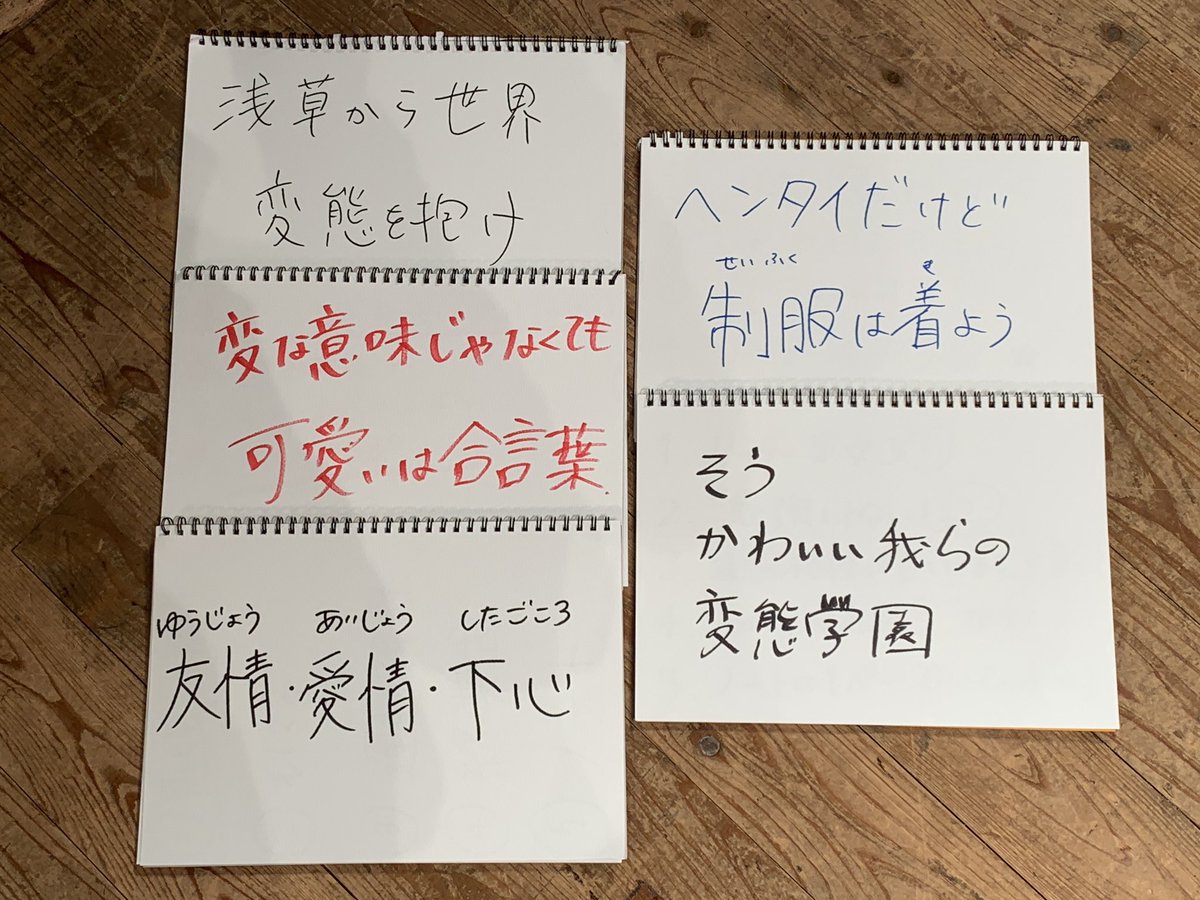 浅草から世界
変態を抱け
変な意味じゃなくても
可愛いは合言葉.
ゆうじょう あいじょう したごころ
友情・愛情・下心
ヘンタイだけど
せいふく き
制服は着よう
そう
かわいい我らの
変態学園